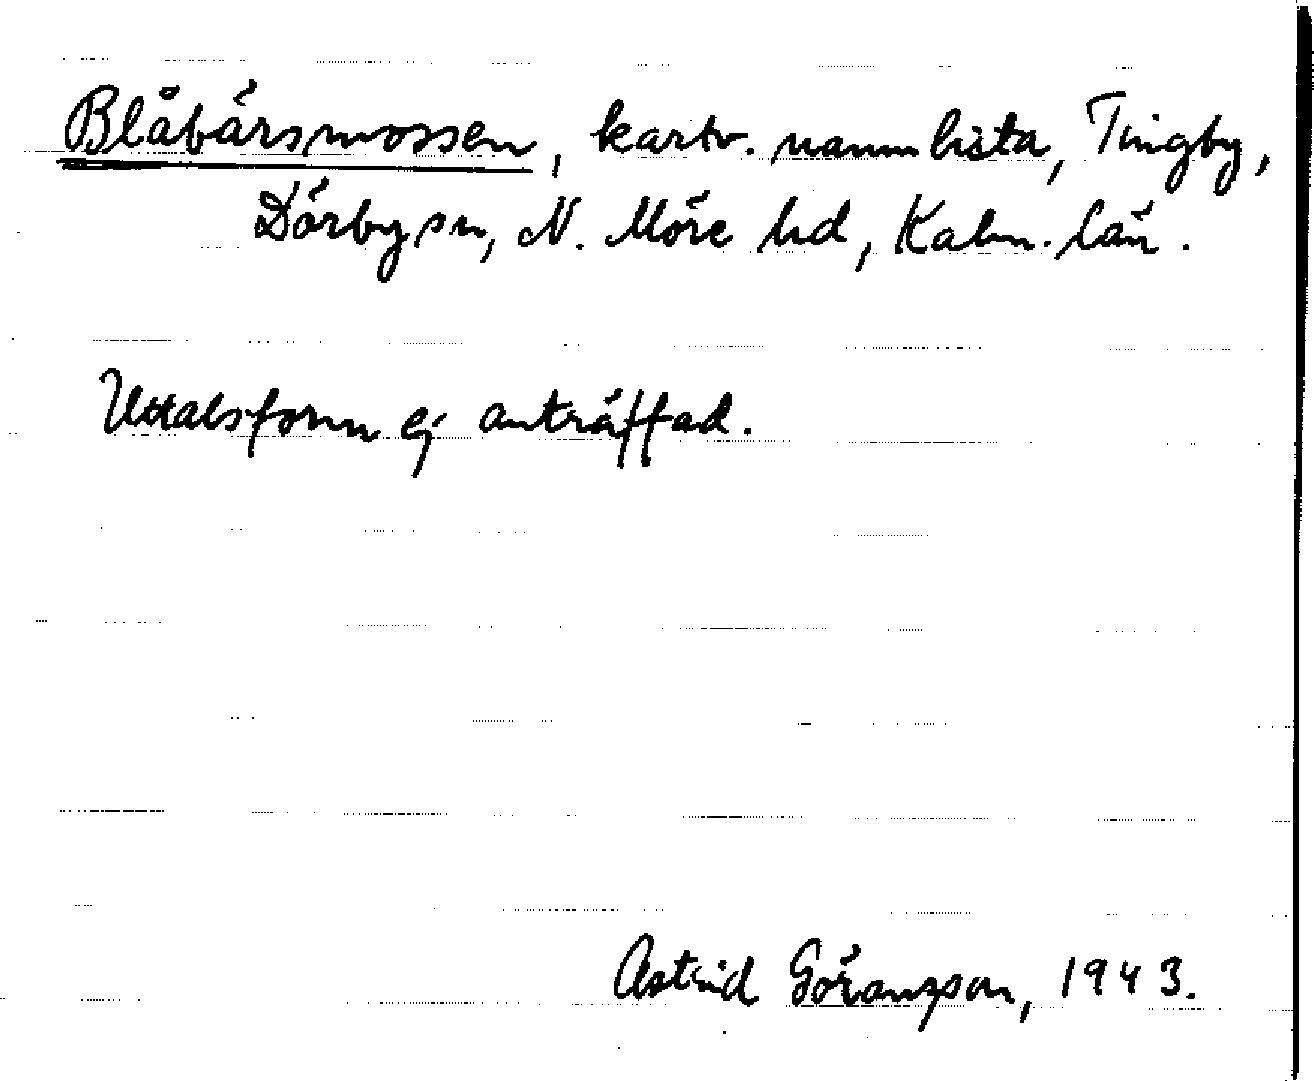 Blåbärsmossen, kartv. namnlista, Tingby,
Dörby sn, N. Möre hd, Kalm. län.
Uttalsform ej anträffad.
Astrid Göranzson, 1943.